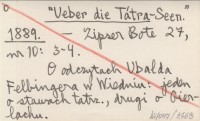 "Ueber die Tátra-Seen."
1889. — Zipser Bote 27,
nr 10: 3-4.
O odczytach Ubalda
Felbingera w Wiedniu: jeden
o stawach tatrz., drugi o Gier-
lachu.